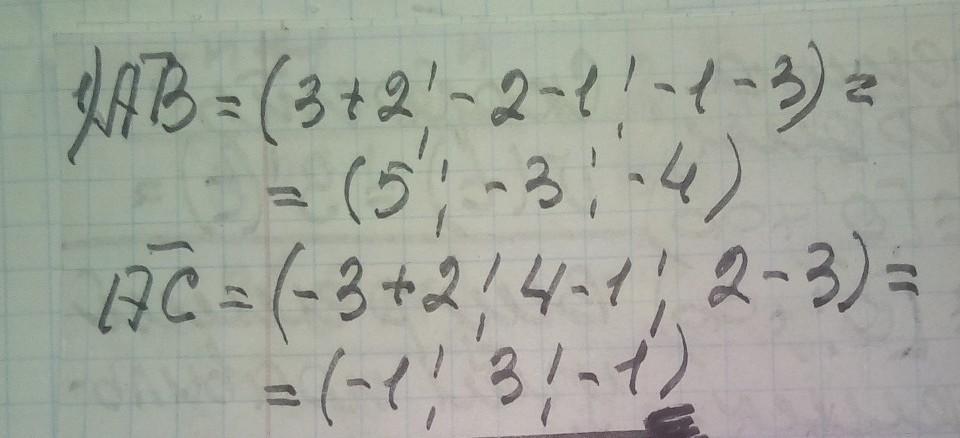 1) A̅B̅ = (3+2; -2-1; -1-3) =
= (5; -3; -4)
A̅C̅ = (-3+2; 4-1; 2-3) =
= (-1; 3; -1)